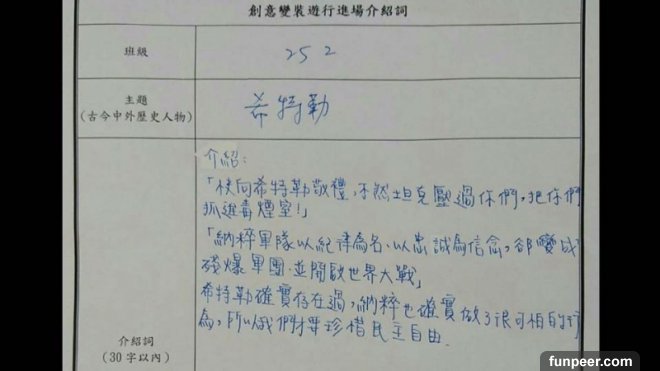 創意變裝遊行進場介紹詞
班級
252
主題
(古今中外歷史人物)
希特勒
介紹:
「快向希特勒敬禮,不然坦克壓過你們,把你們
抓進毒煙室!」
「納粹軍隊以紀律為名、以忠誠為信念,卻變成
殘爆軍團,並開啟世界大戰」
希特勒確實存在過,納粹也確實做了很可怕的行
為,所以我們才要珍惜民主自由.
介紹詞
(30字以內)
funpeer.com